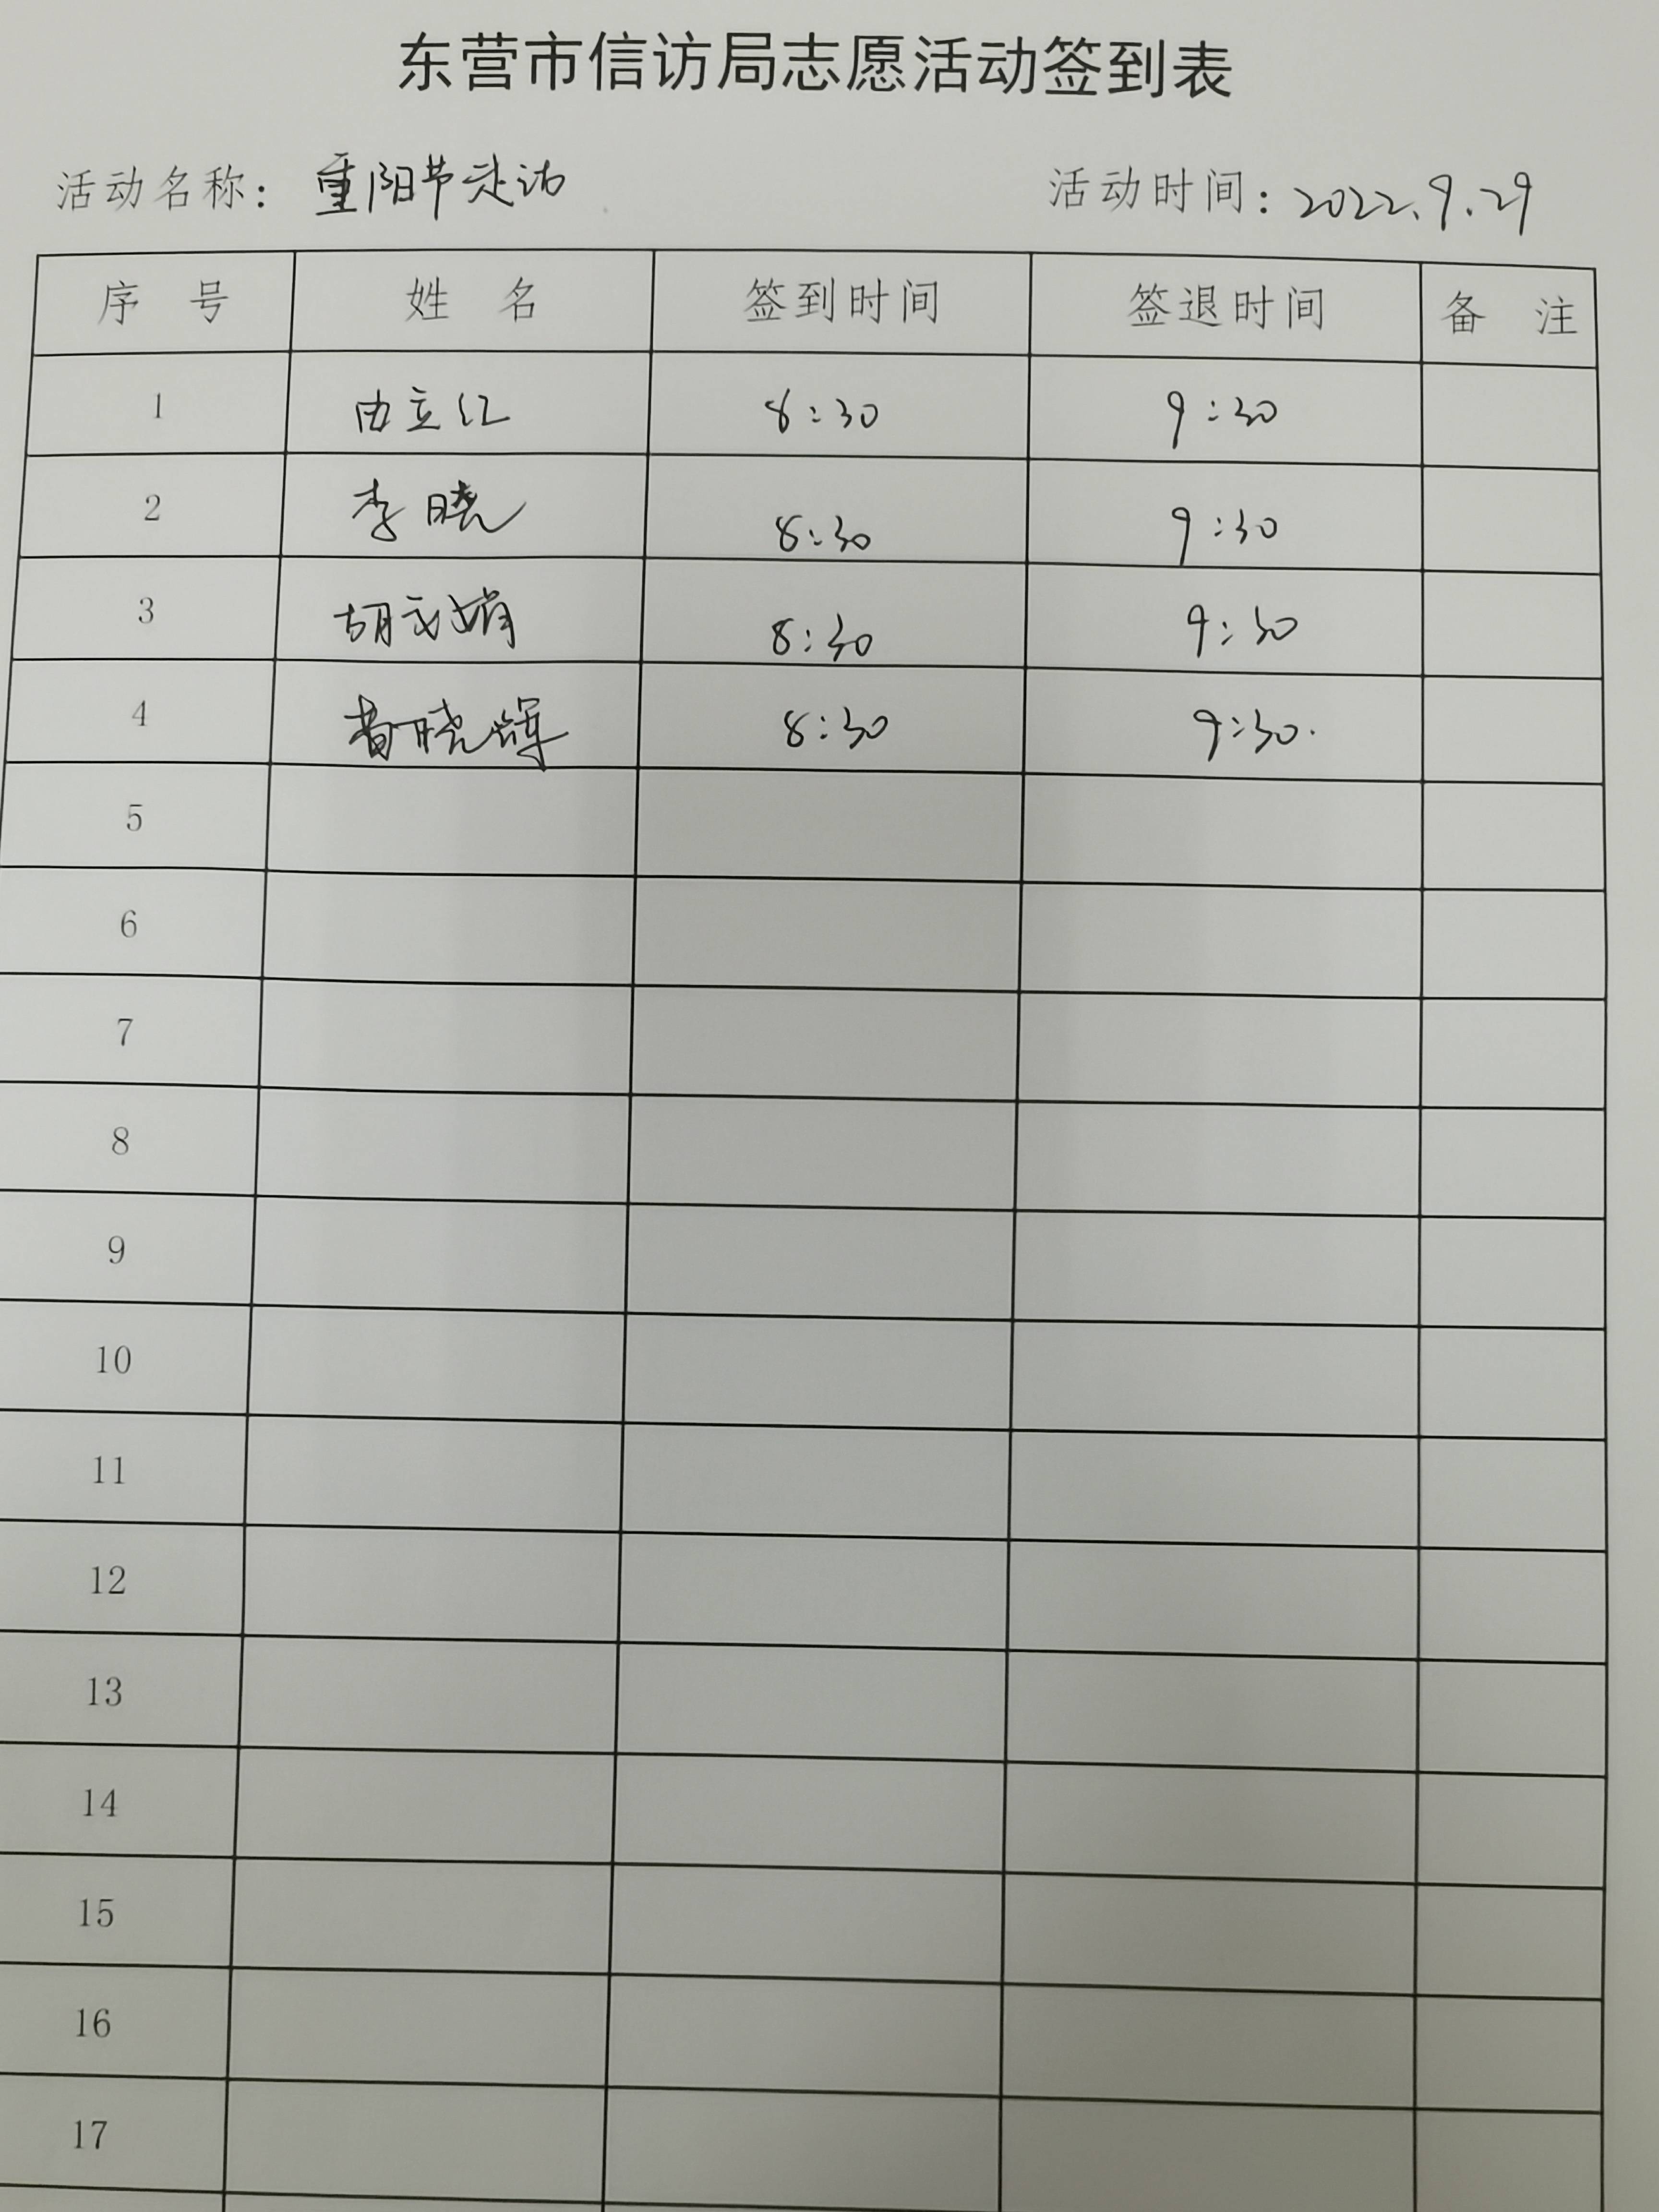 东营市信访局志愿活动签到表
活动名称：重阳节走访 活动时间：2022.9.29
序 号 姓 名 签到时间 签退时间 备 注
1 由立红 8:30 9:30
2 李晓 8:30 9:30
3 胡文娟 8:30 9:30
4 黄晓辉 8:30 9:30.
5
6
7
8
9
10
11
12
13
14
15
16
17